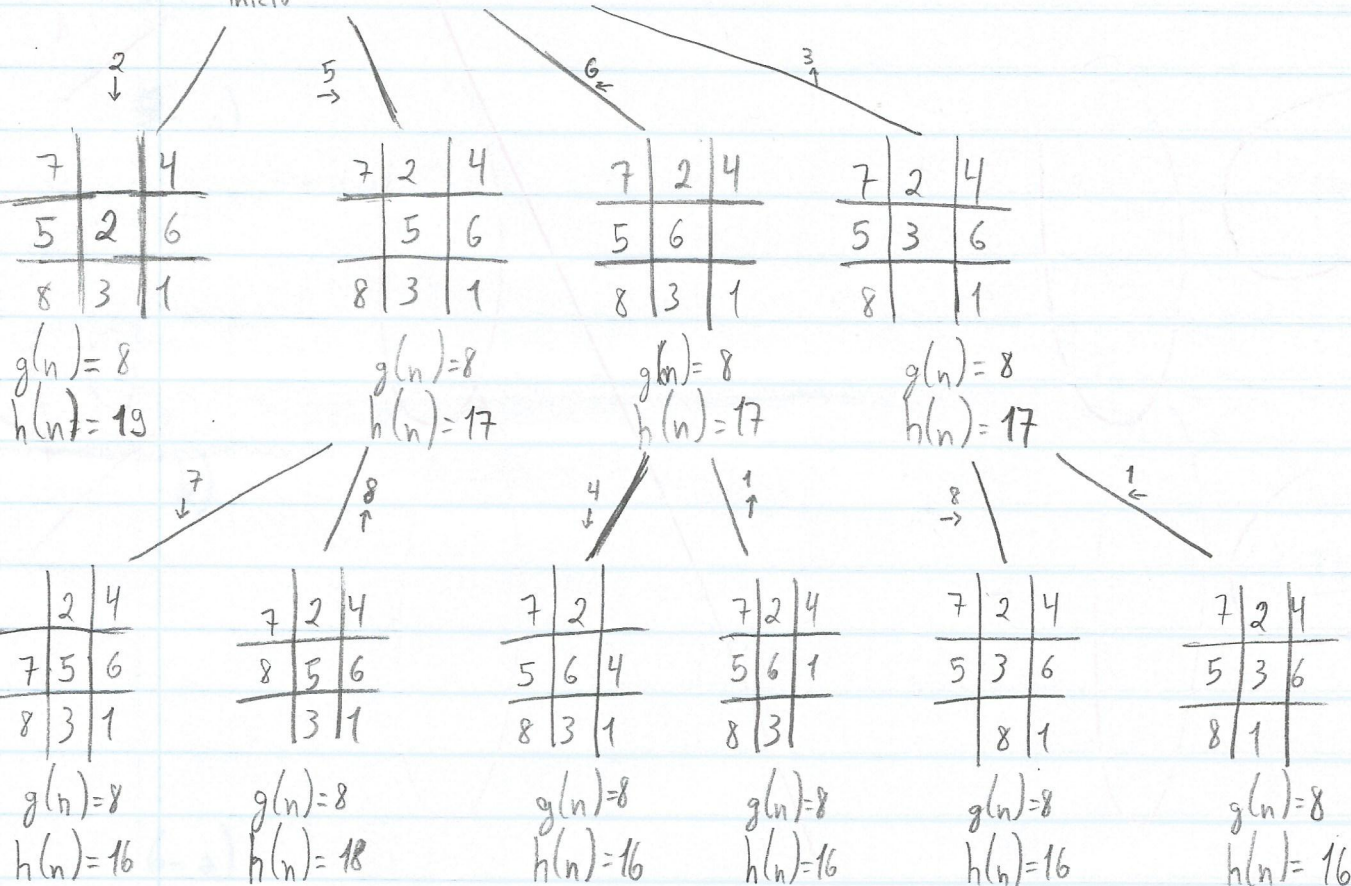 inicio
2 ↓ 5 → 6 ← 3 ↑
7 4
5 2 6
8 3 1
g(n)= 8
h(n)= 19
7 2 4
5 6
8 3 1
g(n)=8
h(n)= 17
7 2 4
5 6
8 3 1
g(n)= 8
h(n)= 17
7 2 4
5 3 6
8 1
g(n)= 8
h(n)= 17
7 ↓ 8 ↑ 4 ↓ 1 ↑ 8 → 1 ←
2 4
7 5 6
8 3 1
g(n)=8
h(n)=16
7 2 4
8 5 6
3 1
g(n)=8
h(n)= 18
7 2
5 6 4
8 3 1
g(n)=8
h(n)=16
7 2 4
5 6 1
8 3
g(n)=8
h(n)=16
7 2 4
5 3 6
8 1
g(n)=8
h(n)=16
7 2 4
5 3 6
8 1
g(n)=8
h(n)= 16